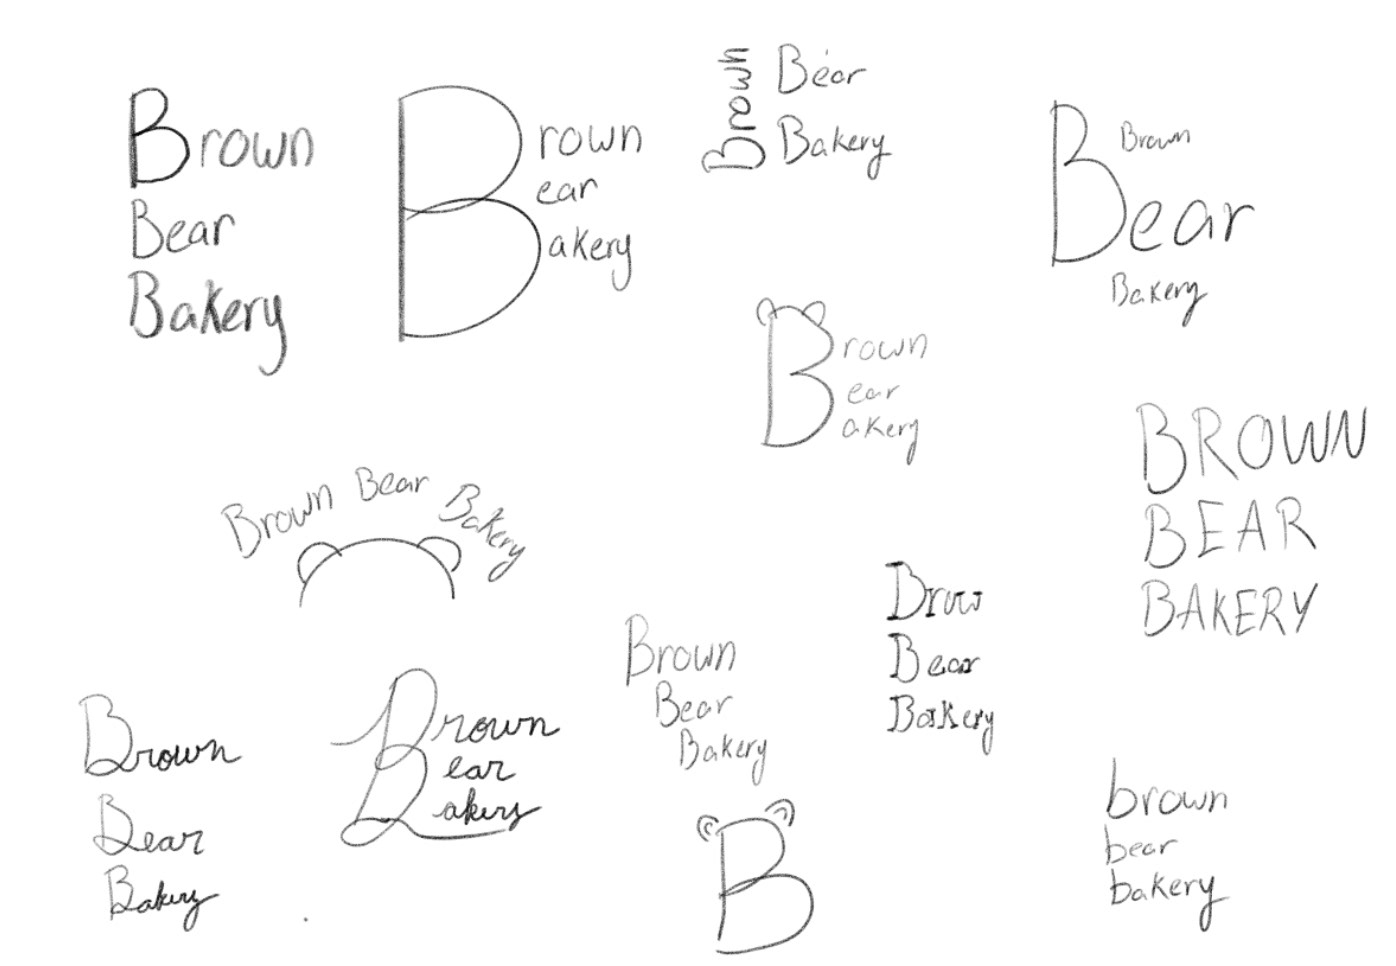 Brown
Bear
Bakery
Brown
ear
akery
Brown
Bear
Bakery
Brown
Bear
Bakery
Brown
ear
akery
BROWN
BEAR
BAKERY
Brown Bear Bakery
Brown
Bear
Bakery
Brown
ear
akery
Brown
Bear
Bakery
B
Bear
Bakery
brown
bear
bakery